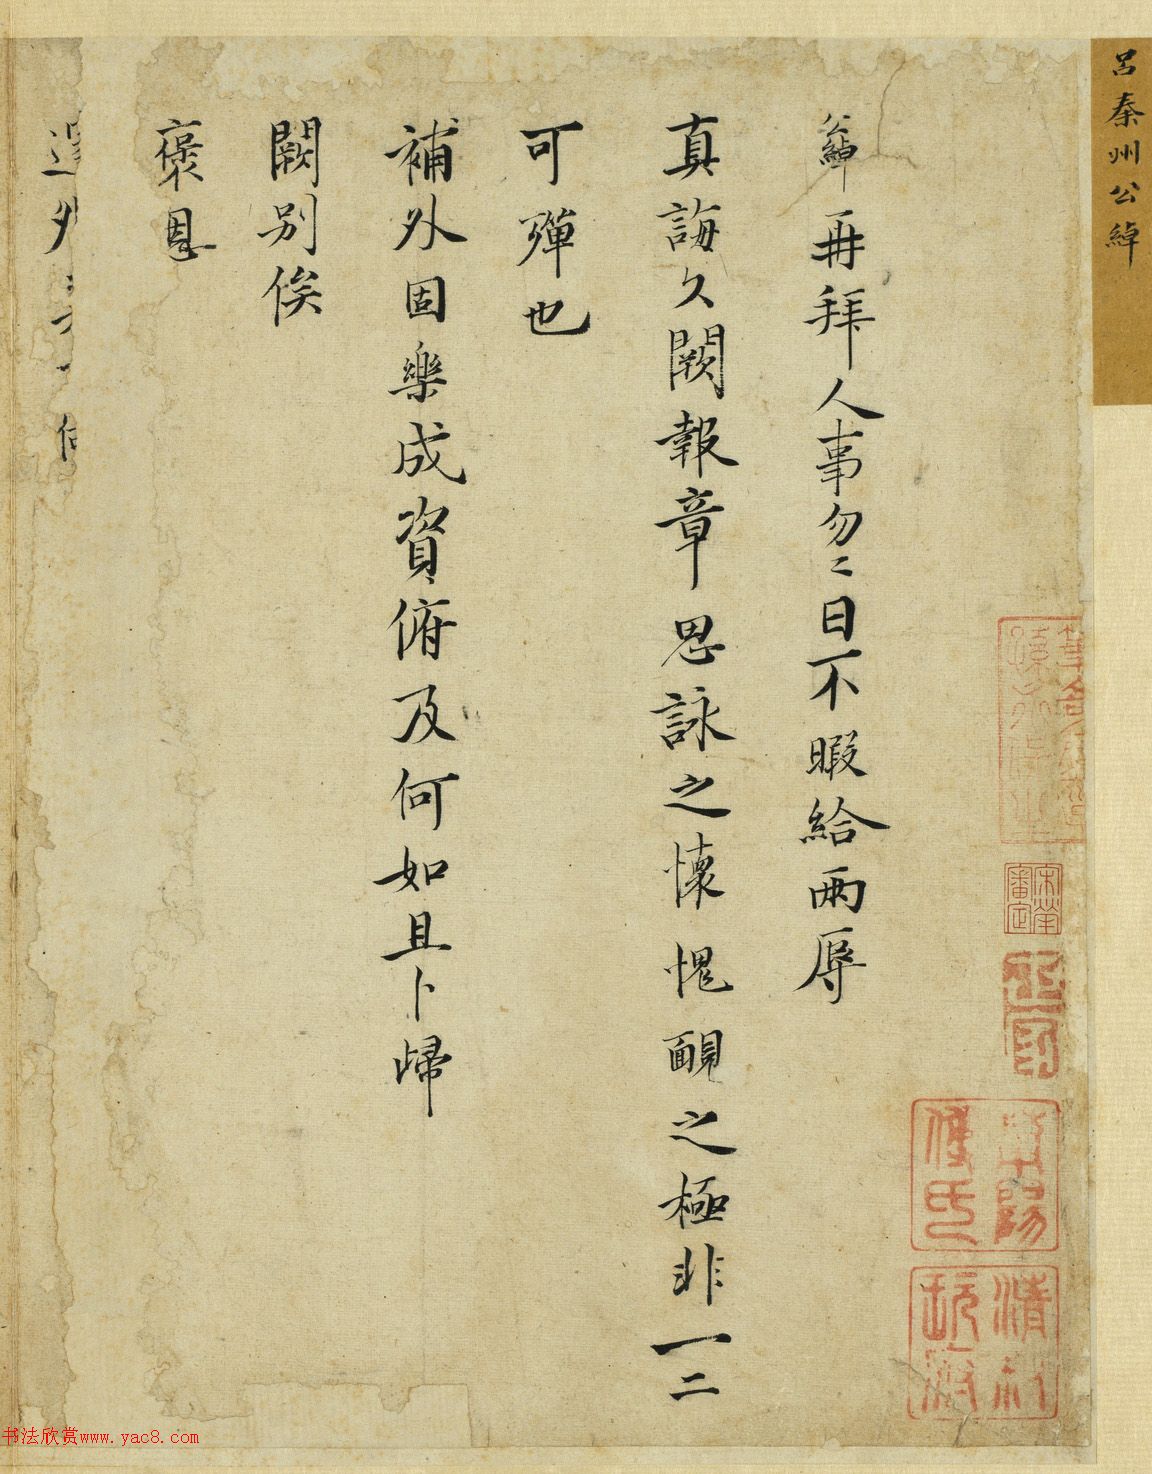 呂秦州公綽
公綽再拜人事匆〻日不暇給兩辱
真誨久闕報章思詠之懷愧靦之極非一二
可殫也
補外固樂成資俯及何如且卜歸
闕別俟
褒恩
外
書法欣赏www.yac8.com